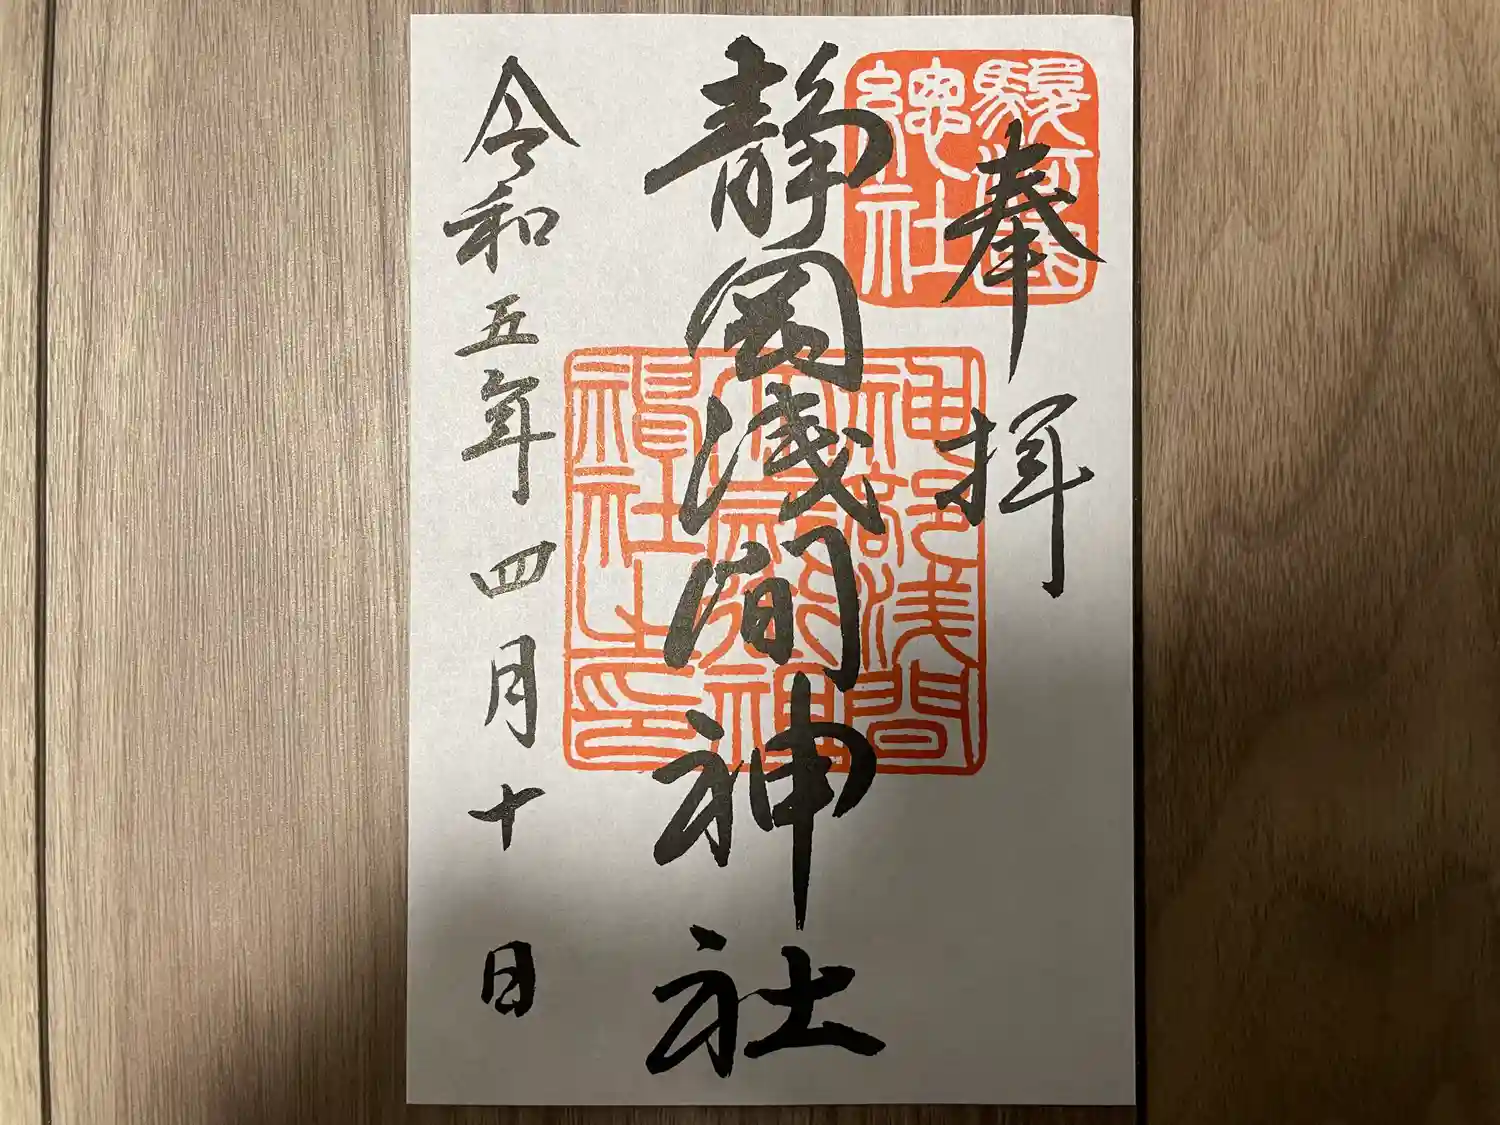 奉拝
駿河國
總社
静岡浅間神社
神部浅間
大歳御祖
神社之印
令和五年四月十日